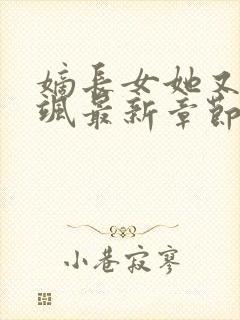 嫡长女她又
飒最新章节
小巷寂寥